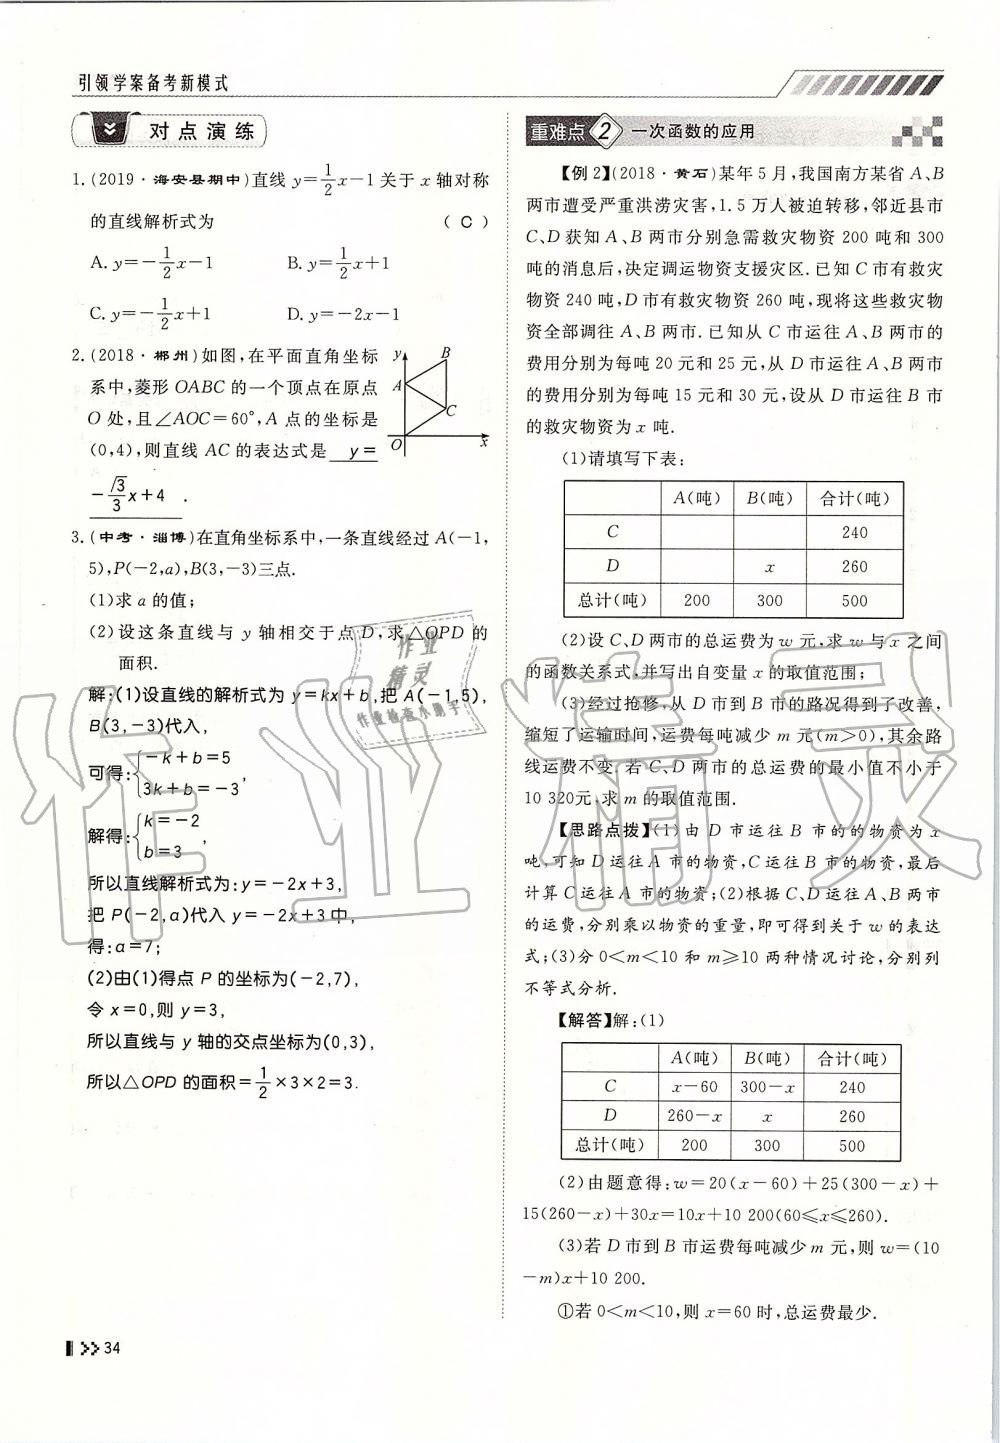 引领学案备考新模式
对点演练
1.(2019·海安县期中)直线 y=1/2x-1关于 x 轴对称
的直线解析式为 ( C )
A. y=-1/2x-1 B. y=1/2x+1
C. y=-1/2x+1 D. y=-2x-1
2.(2018·郴州)如图,在平面直角坐标
系中,菱形 OABC 的一个顶点在原点
O 处,且∠AOC=60°,A 点的坐标是
(0,4),则直线 AC 的表达式是 y=
-√3/3x+4 .
y
B
A
C
O
x
3.(中考·淄博)在直角坐标系中,一条直线经过 A(-1,
5),P(-2,a),B(3,-3)三点.
(1)求 a 的值;
(2)设这条直线与 y 轴相交于点 D,求△OPD 的
面积.
解:(1)设直线的解析式为 y=kx+b,把 A(-1,5),
B(3,-3)代入,
可得:{-k+b=5
3k+b=-3,
解得:{k=-2
b=3 ,
所以直线解析式为:y=-2x+3,
把 P(-2,a)代入 y=-2x+3中,
得:a=7;
(2)由(1)得点 P 的坐标为(-2,7),
令 x=0,则 y=3,
所以直线与 y 轴的交点坐标为(0,3),
所以△OPD 的面积=1/2×3×2=3.
34
重难点 2 一次函数的应用
【例2】(2018·黄石)某年 5 月,我国南方某省 A、B
两市遭受严重洪涝灾害,1.5 万人被迫转移,邻近县市
C、D 获知 A、B 两市分别急需救灾物资 200 吨和 300
吨的消息后,决定调运物资支援灾区.已知 C 市有救灾
物资 240 吨,D 市有救灾物资 260 吨,现将这些救灾物
资全部调往 A、B 两市.已知从 C 市运往 A、B 两市的
费用分别为每吨 20 元和 25 元,从 D 市运往 A、B 两市
的费用分别为每吨 15 元和 30 元,设从 D 市运往 B 市
的救灾物资为 x 吨.
(1)请填写下表:
A(吨) B(吨) 合计(吨)
C 240
D x 260
总计(吨) 200 300 500
(2)设 C、D 两市的总运费为 w 元,求 w 与 x 之间
的函数关系式,并写出自变量 x 的取值范围;
(3)经过抢修,从 D 市到 B 市的路况得到了改善,
缩短了运输时间,运费每吨减少 m 元(m>0),其余路
线运费不变.若 C、D 两市的总运费的最小值不小于
10 320元,求 m 的取值范围.
【思路点拨】(1)由 D 市运往 B 市的的物资为 x
吨,可知 D 运往 A 市的物资,C 运往 B 市的物资,最后
计算 C 运往 A 市的物资;(2)根据 C、D 运往 A、B 两市
的运费,分别乘以物资的重量,即可得到关于 w 的表达
式;(3)分 0<m<10 和 m≥10 两种情况讨论,分别列
不等式分析.
【解答】解:(1)
A(吨) B(吨) 合计(吨)
C x-60 300-x 240
D 260-x x 260
总计(吨) 200 300 500
(2)由题意得:w=20(x-60)+25(300-x)+
15(260-x)+30x=10x+10 200(60≤x≤260).
(3)若 D 市到 B 市运费每吨减少 m 元,则 w=(10
-m)x+10 200.
①若 0<m<10,则 x=60 时,总运费最少.
作业精灵
作业
精灵
作业检查小助手